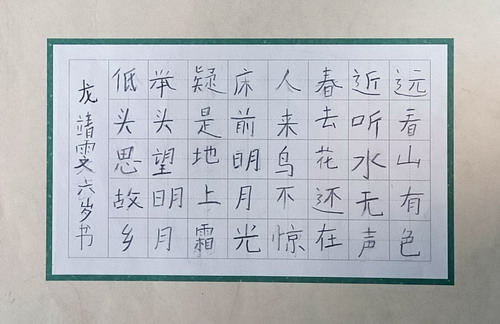 远看山有色
近听水无声
春去花还在
人来鸟不惊
床前明月光
疑是地上霜
举头望明月
低头思故乡
龙靖雯六岁书